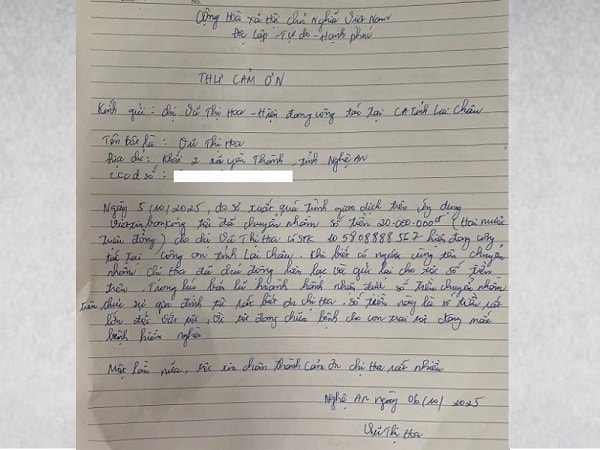 Cộng Hòa Xã Hội Chủ Nghĩa Việt Nam
Độc Lập - Tự do - Hạnh phúc
THƯ CẢM ƠN
Kính gửi: chị Vũ Thị Hoa - Hiện đang công tác tại CA tỉnh Lai Châu
Tên tôi là: Vũ Thị Hoa
Địa chỉ: Khối 2 xã Yên Thành - tỉnh Nghệ An
CCCD số:
Ngày 5/10/2025, do sơ xuất quá trình giao dịch trên ứng dụng
Vietinbanking tôi đã chuyển nhầm số tiền 20.000.000đ (Hai mươi
triệu đồng) cho chị Vũ Thị Hoa có STK 105808888567 hiện đang công
tác tại công an tỉnh Lai Châu. Khi biết có người cùng tên chuyển
nhầm chị Hoa đã chủ động liên lạc và gửi lại cho tôi số tiền
trên. Trong lúc nhận được số tiền chuyển nhầm
trên thực sự gia đình tôi rất biết ơn chị Hoa. Số tiền này là số tiền rất
lớn đối với tôi, tôi đang chữa bệnh cho con trai tôi đang mắc
bệnh hiểm nghèo
Một lần nữa, tôi xin chân thành cảm ơn chị Hoa rất nhiều
Nghệ An ngày 06/10/2025
Vũ Thị Hoa